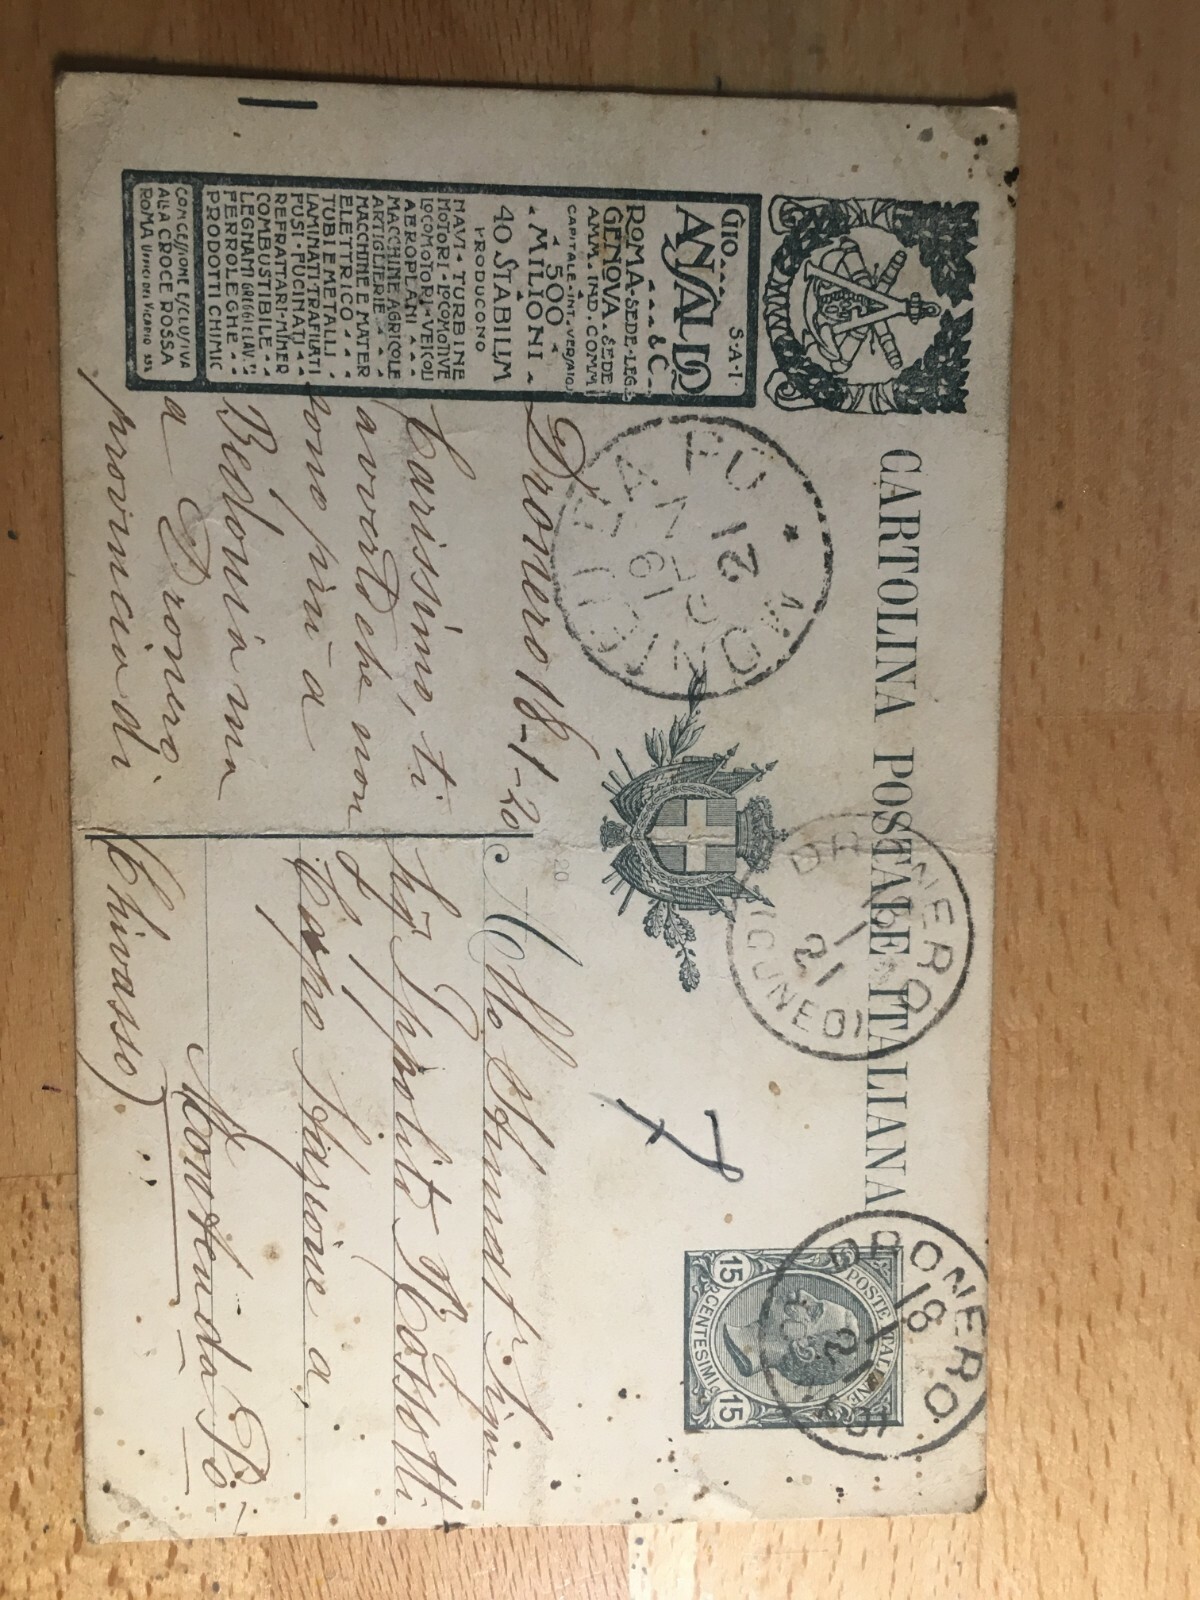 CARTOLINA POSTALE ITALIANA
POSTE ITALIANE
15 CENTESIMI 15
DRONERO
18
1
21
DRONERO
1
21
(CUNEO)
12
GIO.
S·A·I·
ANSALDO
& C.
ROMA·SEDE·LEG.
GENOVA·SEDE
AMM. IND. COMM
CAPITALE·INT·VERSATO
500
MILIONI
40 STABILIM
PRODUCONO
NAVI·TURBINE
MOTORI·LOCOMOTIVE
LOCOMOTORI·VEICOLI
AEROPLANI
MACCHINE AGRICOLE
ARTIGLIERIE
MACCHINE E MATER
ELETTRICO
TUBI E METALLI
LAMINATI TRAFILATI
FUSI·FUCINATI
REFRATTARI·MINER
COMBUSTIBILE
LEGNAMI GREGGI E LAV.
FERROLEGHE
PRODOTTI CHIMIC
CONCESSIONE ESCLUSIVA
ALLA CROCE ROSSA
ROMA
Dronero 18-1-20
Carissimo, ti
avverto che non
sono più a
Bedonia ma
a Dronero
provincia di
7
20
Sig. Ippolito Rossotti
Capo Stazione a
Monteu da Po
(Chivasso)